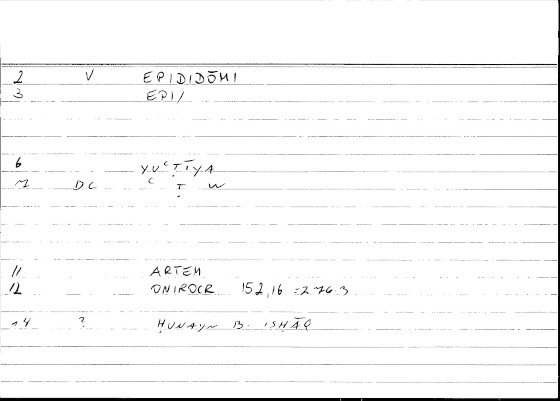 2 V EPIDIDŌMI
3 EPI/
6 YUʿṬĪYA
7 DC ʿ Ṭ W
11 ARTEM
12 ONIROCR 152,16 = 276 3
14 ? ḤUNAYN B. ISḤĀQ